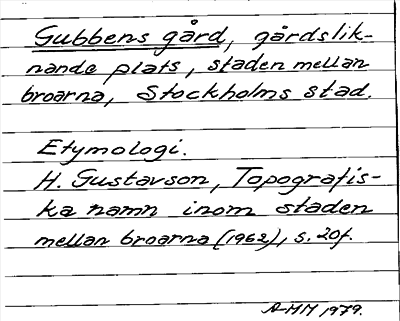 Gubbens gård, gårdslik-
nande plats, staden mellan
broarna, Stockholms stad.
Etymologi.
H. Gustavson, Topografis-
ka namn inom staden
mellan broarna (1962), s. 20f.
A-MM 1979.